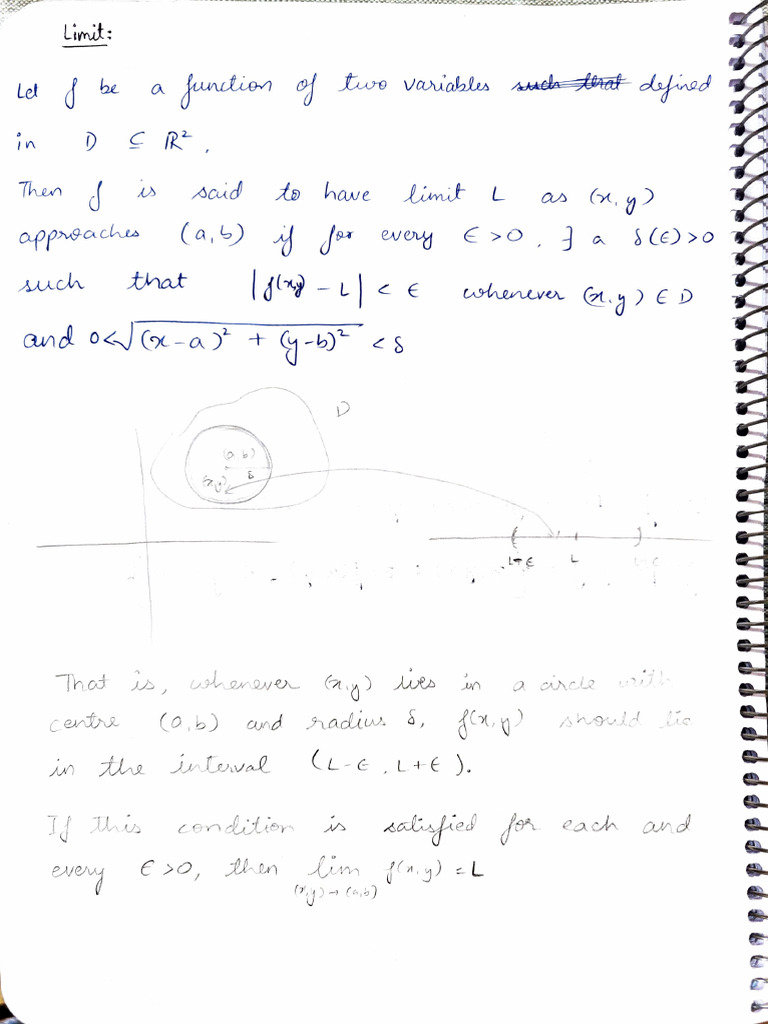 Limit:
Let f be a function of two variables such that defined
in D ⊆ ℝ².
Then f is said to have limit L as (x,y)
approaches (a,b) if for every ε>0, ∃ a δ(ε)>0
such that |f(x,y) - L| < ε whenever (x,y) ∈ D
and 0<√(x-a)² + (y-b)² < δ
D
(a,b)
δ
(x,y)
L+ε L
That is, whenever (x,y) lies in a circle with
centre (0,b) and radius δ, f(x,y) should lie
in the interval (L-ε, L+ε).
If this condition is satisfied for each and
every ε>0, then lim f(x,y) = L
(x,y)→(a,b)